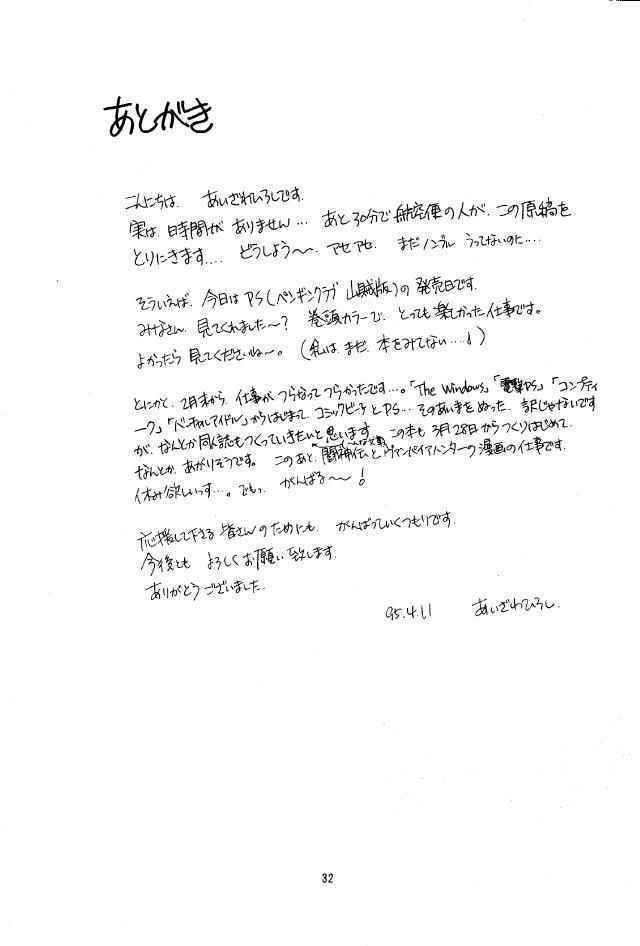 あとがき
こんにちは あいざわひろしです.
実は 時間が ありません… あと 30分で 航空便の人が、この原稿を
とりにきます…. どうしよう〜、アセアセ. まだノンブル うってないのに….
そういえば、今日は PS(ペンギンクラブ 山賊版)の 発売日です.
みなさん、見てくれました〜? 巻頭カラーで、とっても 楽しかった仕事です。
よかったら 見てくださいね〜。(私は、まだ、本をみてない….!)
とにかく、2月末から、仕事が つらなって つらかったです…。「The Windows」「電撃PS」「コンプティ
ーク」「バーチャルアイドル」からはじまって コミックビーチと PS… そのあいまをぬった、訳じゃないです
が、なんとか同人誌もつくっていきたいと思います この本も 3月28日からつくりはじめて、
なんとか、あがりそうです。 このあと、闘神伝とヴァンパイアハンターの漫画の仕事です.
休み欲しいっす…。でもっ がんばる〜!
応援して下さる 皆さんのためにも がんばっていくつもりです.
今後とも よろしくお願い致します.
ありがとうございました.
95.4.11 あいざわひろし.
32